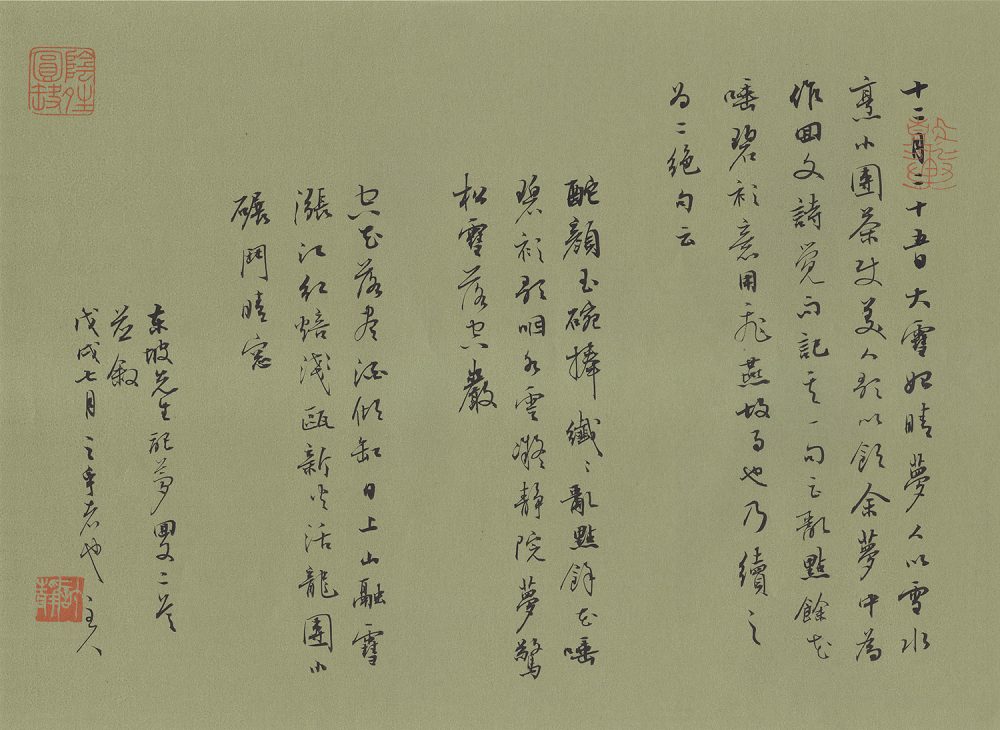 十二月二十五日大雪始晴夢人以雪水
烹小團茶使美人歌以飲余夢中為
作回文詩覺而記其一句云亂點餘花
唾碧衫意用飛燕故事也乃續之
為二絕句云
酡顏玉碗捧纖〻亂點餘花唾
碧衫歌咽水雲凝靜院夢驚
松雪落空巖
空花落盡酒傾缸日上山融雪
漲江紅焙淺甌新火活龍團小
碾鬥晴窗
東坡先生記夢回文二首
並敘
戊戌七月之乎者也主人
陰晴圓缺